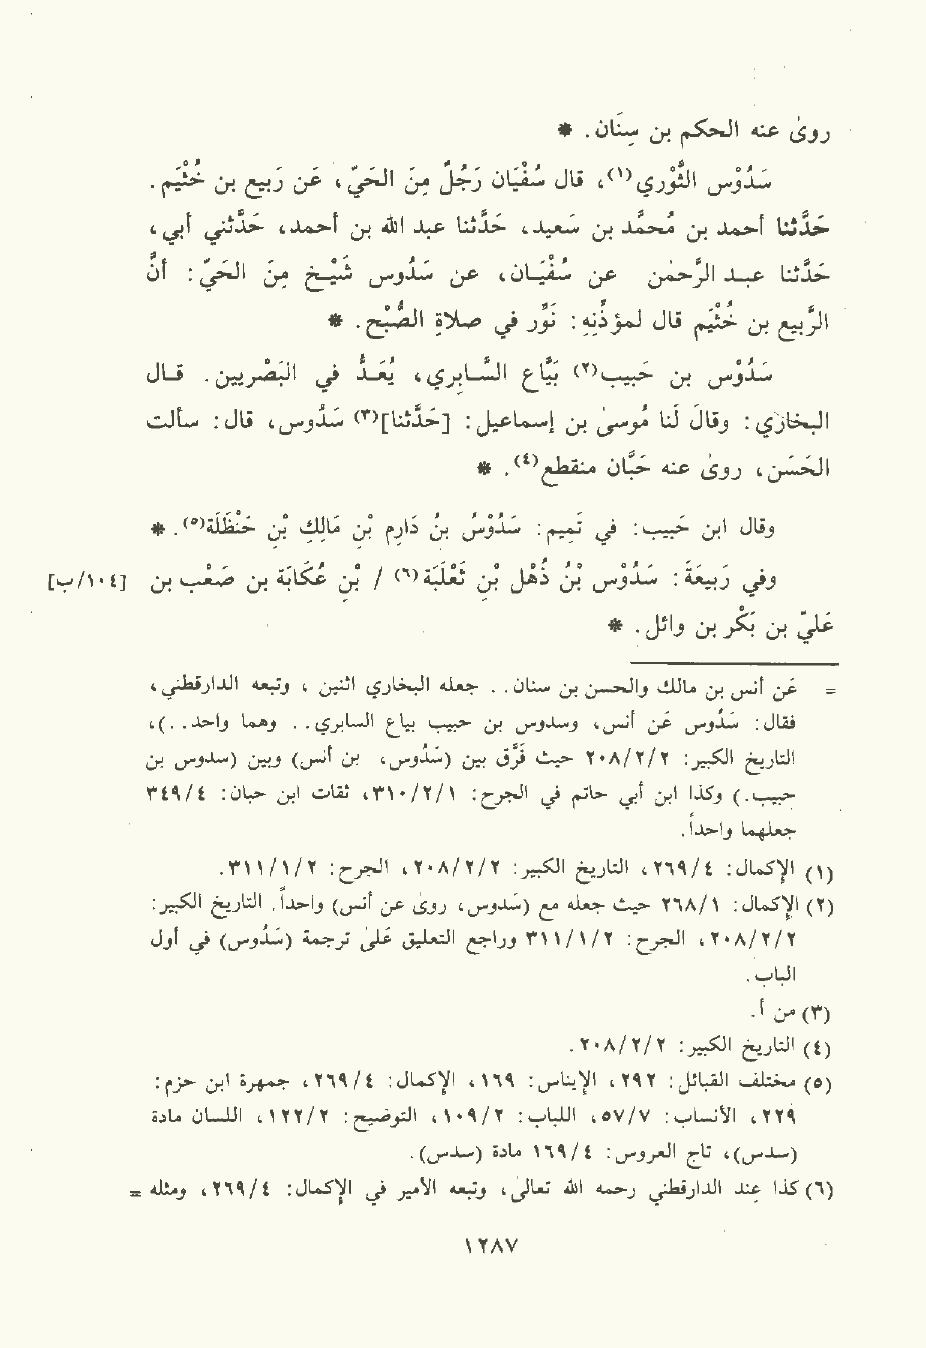 روىٰ عنه الحكم بن سِنَان. *
سَدُوْس الثَّوْري(١)، قال سُفْيَان رَجُلٌ مِنَ الحَيّ، عَن رَبيع بن خُثَيْم.
حَدَّثنا أحمد بن محمَّد بن سَعيد، حَدَّثنا عبد الله بن أحمد، حَدَّثني أبي،
حَدَّثنا عبد الرَّحمٰن عن سُفْيَان، عن سَدُوس شَيْخ مِنَ الحَيّ: أنَّ
الرَّبيع بن خُثَيْم قال لمؤذّنِهِ: نَوِّر في صلاةِ الصُّبْح. *
سَدُوْس بن حَبيب(٢) بَيَّاع السَّابِري، يُعَدُّ في البَصْريين. قال
البخاري: وقالَ لنَا مُوسىٰ بن إسماعيل: [حَدَّثنا](٣) سَدُوس، قال: سألت
الحَسَن، روىٰ عنه حَبَّان منقطع(٤). *
وقال ابن حَبيب: في تَميم: سَدُوْسُ بنُ دَارِم بْنِ مَالِكِ بْنِ حَنْظَلَة(٥). *
وفي رَبيعَةَ: سَدُوْس بْنُ ذُهْل بْنِ ثَعْلَبَة(٦) / بْنِ عُكَابَةَ بن صَعْب بن [١٠٤/ب]
عَليّ بن بَكْر بن وائل. *
= عَن أنس بن مالك والحسن بن سنان.. جعله البخاري اثنين، وتبعه الدارقطني،
فقال: سَدُوس عَن أنس، وسدوس بن حبيب بياع السابري.. وهما واحد..)،
التاريخ الكبير: ٢٠٨/٢/٢ حيث فَرَّق بين (سَدُوس، بن أنس) وبين (سدوس بن
حبيب.) وكذا ابن أبي حاتم في الجرح: ٣١٠/٢/١، ثقات ابن حبان: ٣٤٩/٤
جعلهما واحداً.
(١) الإكمال: ٢٦٩/٤، التاريخ الكبير: ٢٠٨/٢/٢، الجرح: ٣١١/١/٢.
(٢) الإكمال: ٢٦٨/١ حيث جعله مع (سَدُوس، روىٰ عن أنس) واحداً. التاريخ الكبير:
٢٠٨/٢/٢، الجرح: ٣١١/١/٢ وراجع التعليق عَلىٰ ترجمة (سَدُوس) في أول
الباب.
(٣) من أ.
(٤) التاريخ الكبير: ٢٠٨/٢/٢.
(٥) مختلف القبائل: ٢٩٢، الإيناس: ١٦٩، الإكمال: ٢٦٩/٤، جمهرة ابن حزم:
٢٢٩، الأنساب: ٥٧/٧، اللباب: ١٠٩/٢، التوضيح: ١٢٢/٢، اللسان مادة
(سدس)، تاج العروس: ١٦٩/٤ مادة (سدس).
(٦) كذا عِند الدارقطني رحمه الله تعالىٰ، وتبعه الأمير في الإكمال: ٢٦٩/٤، ومثله =
١٢٨٧